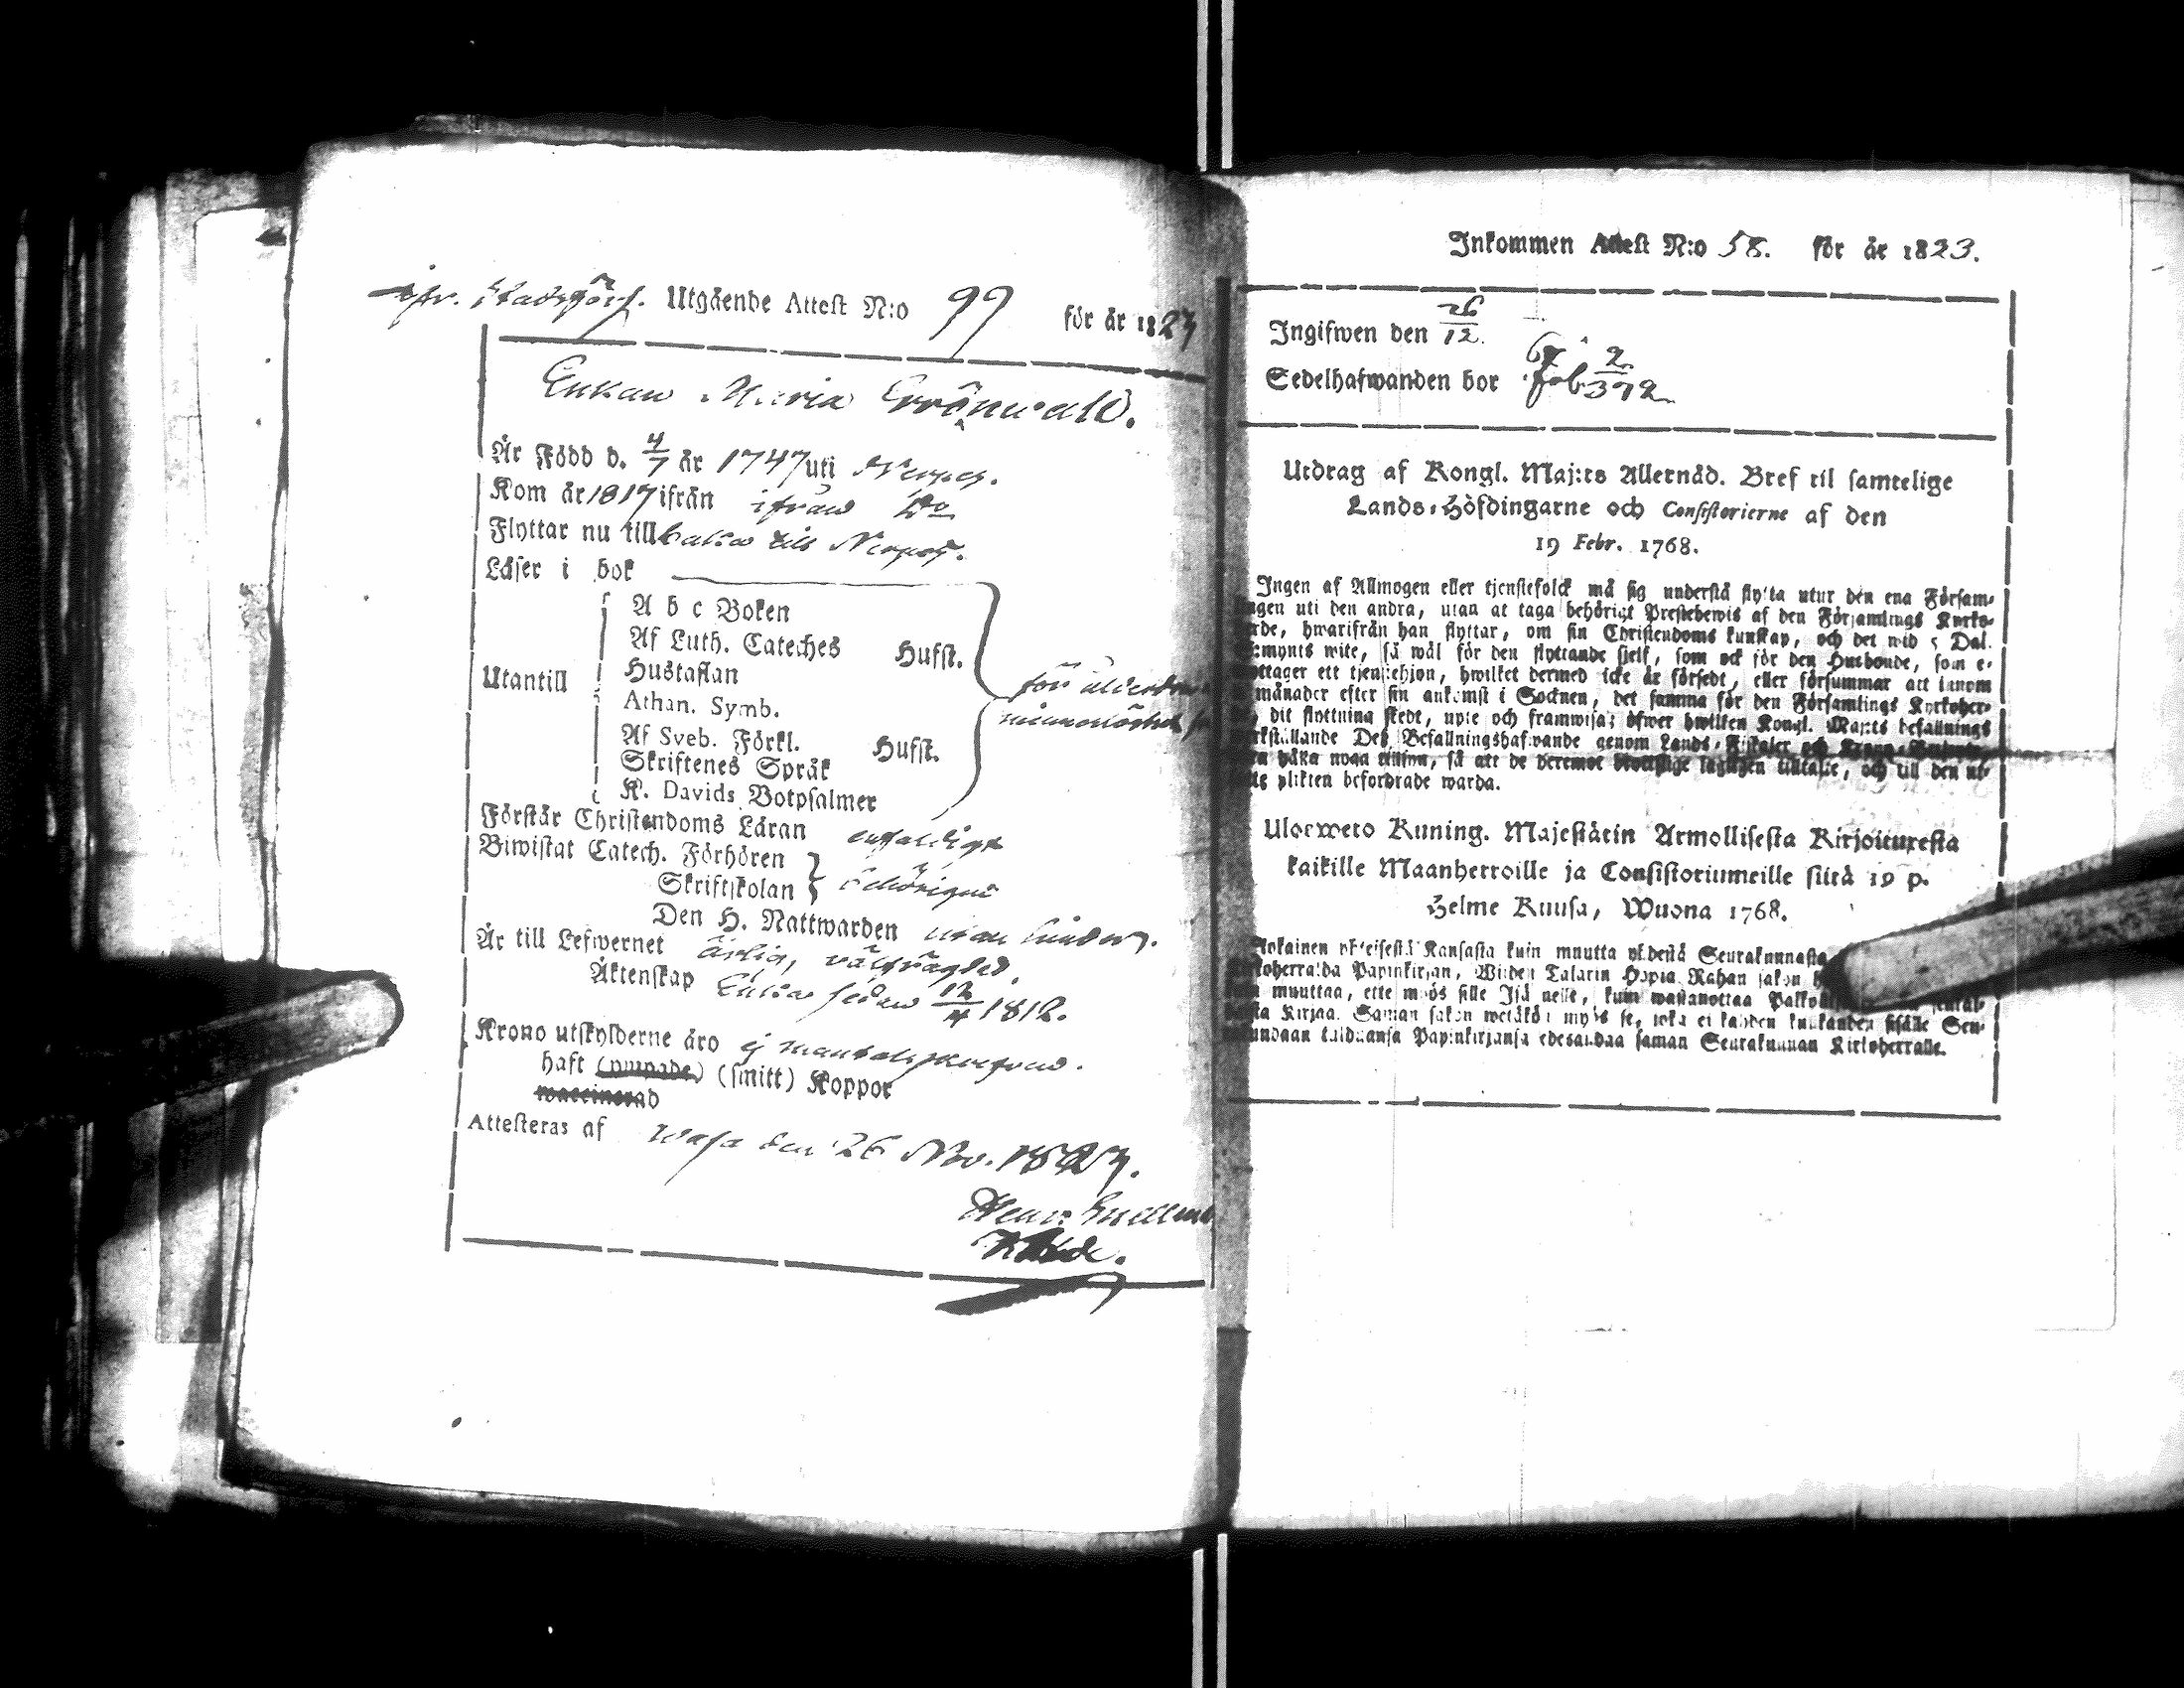 Utgående Attest N:o 99 för år 1823
Enkan Maria Grönwall.
Är Född d. 4/7 år 1747 uti Nerpes.
Kom år 1817 ifrån ifrån Do
Flyttar nu till baka till Nerpes.
Läser i bok
A b c Boken
Af Luth. Cateches Hufst.
Hustaflan
Utantill
Athan. Symb.
Af Sveb. Förkl. Hufst.
Skriftenes Språk
K. Davids Botpsalmer
för ålderdom
minneslöshet
Förstår Christendoms Läran enfaldigt
Biwistat Catech. Förhören
Skriftskolan
Den H. Nattwarden utan hinder.
Är till Lefwernet ärlig, välfrägdad.
Äktenskap Enka sedan 12/4 1812.
Krono utskylderne äro ej mantalspenningar.
haft (ympade) (smitt) Koppor
waccinerad
Attesteras af Wasa den 26 Nov. 1823.
Inkommen Attest N:o 58. för år 1823.
Ingifwen den 26/12.
Sedelhafwanden bor
Utdrag af Kongl. Maj:ts Allernåd. Bref til samtelige
Lands-Höfdingarne och Consistorierne af den
19 Febr. 1768.
Ingen af Allmogen eller tjenstefolck må sig understå flytta utur den ena Församlingen uti den andra, utan at taga behörigt Prestebewis af den Församlings Kyrko-
hwarifrån han flyttar, om sin Christendoms kunskap, och det wid 5 Dal.
S:mynts wite, så wäl för den flyttande sjelf, som ock för den Husbonde, som e-
mottager ett tjenstehjon, hwilket dermed icke är försedt, eller försummar att innom
månader efter sin ankomst i Socknen, det samma för den Församlings Kyrkoher-
dit flyttning skedt, upte och framwisa; öfwer hwilken Kongl. Maj:ts befallnings
werkställande Des Befallningshafwande genom Lands-Fiskaler och Krono-
hafwa noga tillsyn, så att de deremot brottslige lagligen tilltalte, och till den ut-
plikten befordrade warda.
Uloswetto Kuning. Majestätin Armollisesta Kirjoituxesta
kaikille Maanherroille ja Consistoriumeille siitä 19 p.
Helme Kuusa, Wuona 1768.
Kansasta kuin muutta yhdestä Seurakunnasta
Papinkirjan, Wiiden Talarin Hopia Rahan sakon
muuttaa, ette myös sille Isännelle, kuin wastanottaa
Kirjaa. Saman sakon wetäköön myös se, joka ei kahden kuukauden sisälle Seu-
Papinkirjansa edesandaa saman Seurakunnan Kirkoherralle.